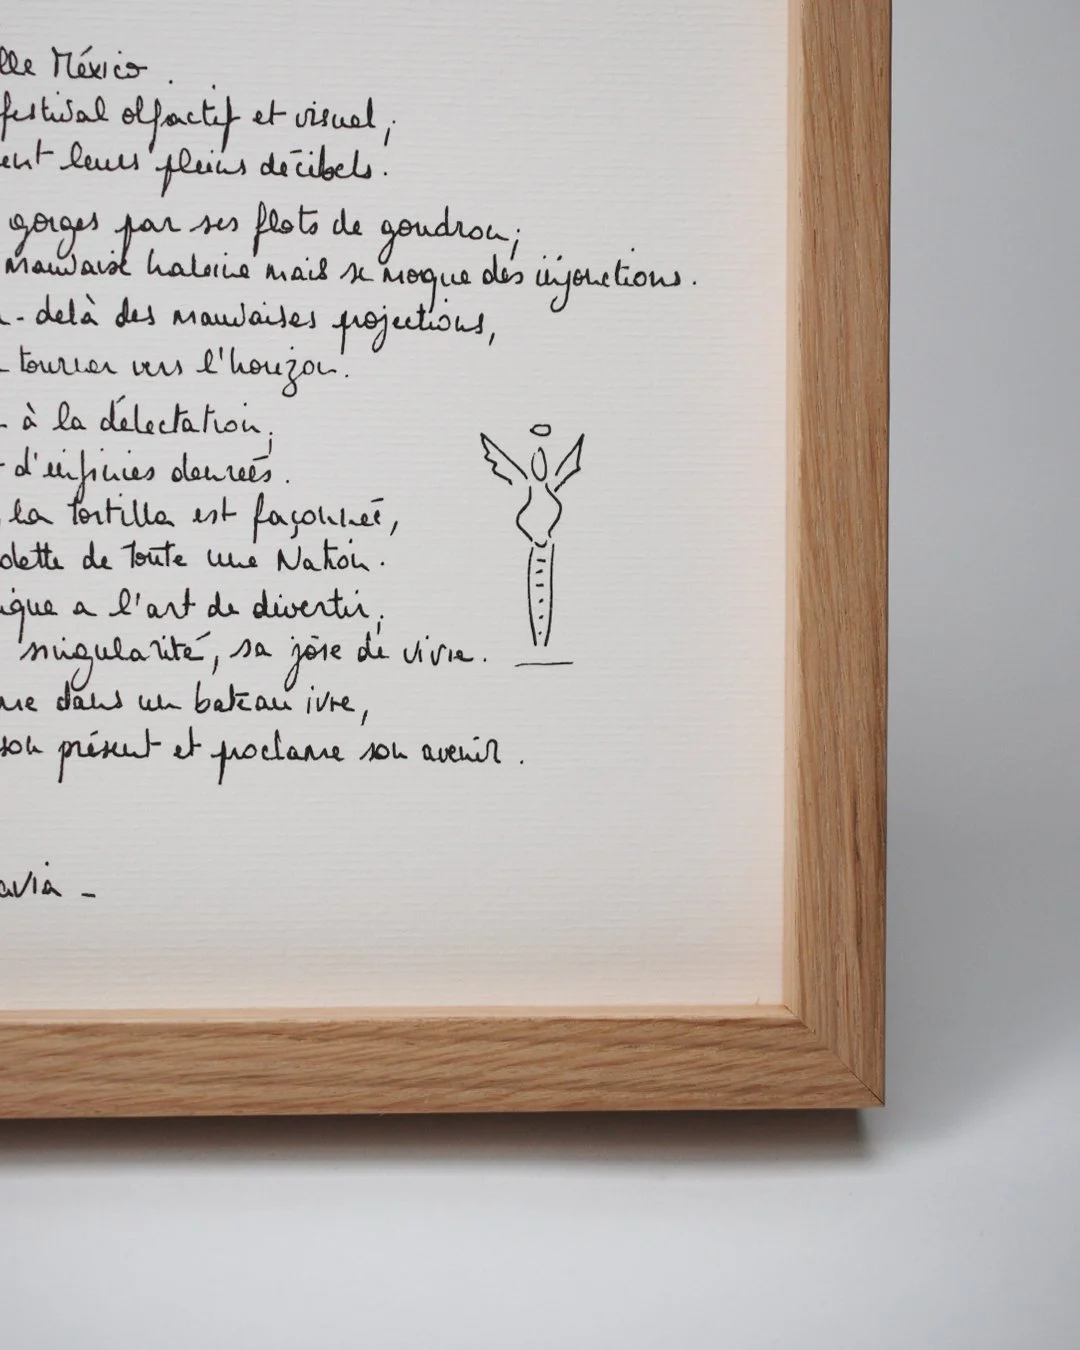 lle México.
festival olfactif et visuel;
ent leurs pleins décibels.
gorges par ses flots de goudron;
mauvaise haleine mais se moque des injonctions.
-delà des mauvaises projections,
tourner vers l'horizon.
à la délectation;
d'infinies denrées.
la tortilla est façonnée,
dette de toute une Nation.
ique a l'art de divertir;
singularité, sa joie de vivre.
me dans un bateau ivre,
son présent et proclame son avenir.
avia -